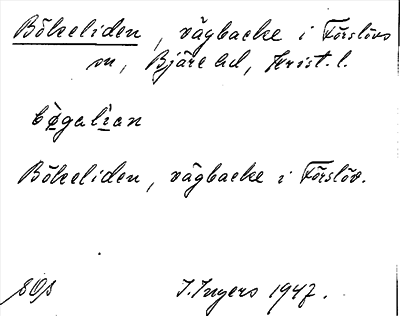 Bökeliden, vägbacke i Förslövs
sn, Bjäre hd, Krist. l.
bø̀galìan
Bökeliden, vägbacke i Förslöv.
I. Ingers 1947.